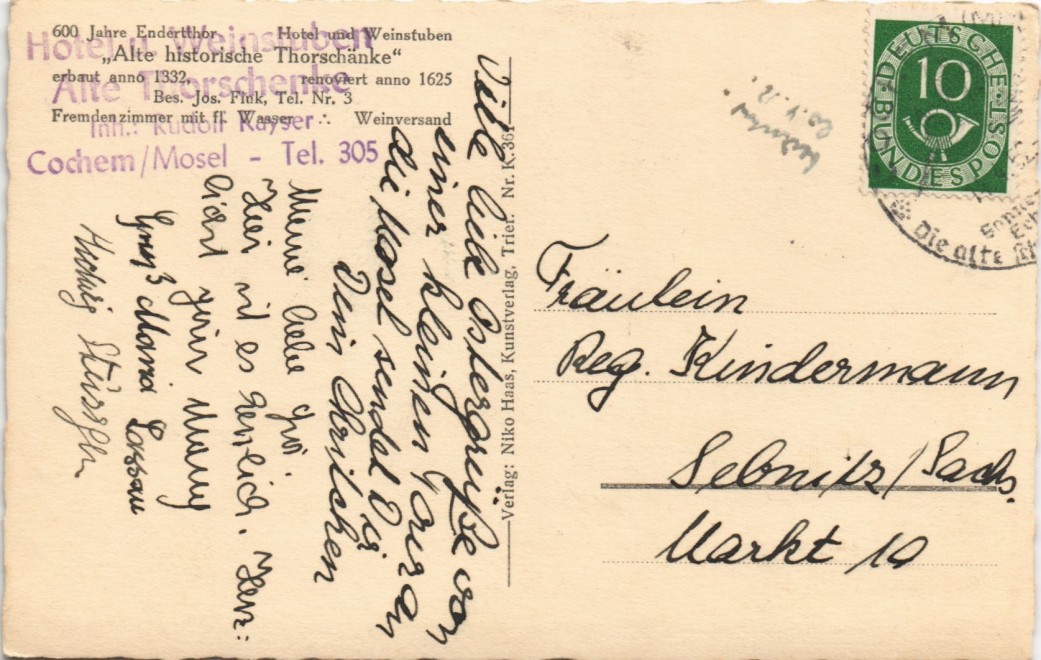 600 Jahre Endertthor Hotel und Weinstuben
„Alte historische Thorschänke“
erbaut anno 1332, renoviert anno 1625
Bes. Jos. Fink, Tel. Nr. 3
Fremdenzimmer mit fl. Wasser ∴ Weinversand
Hotel u. Weinstuben
Alte Thorschenke
Inh.: Rudolf Kayser
Cochem/Mosel - Tel. 305
Viele liebe Ostergrüße von
einer kleinen Tour an
die Mosel sendet Dir
Dein Christchen
Meine liebe
Hier ist es herrlich. Herz:
lichst
Gruß Maria
Hedwig
Verlag: Niko Haas, Kunstverlag, Trier. Nr. K. 36
DEUTSCHE
BUNDESPOST
10
Die alte
Fräulein
Reg. Kindermann
Sebnitz/Sachs.
Markt 10